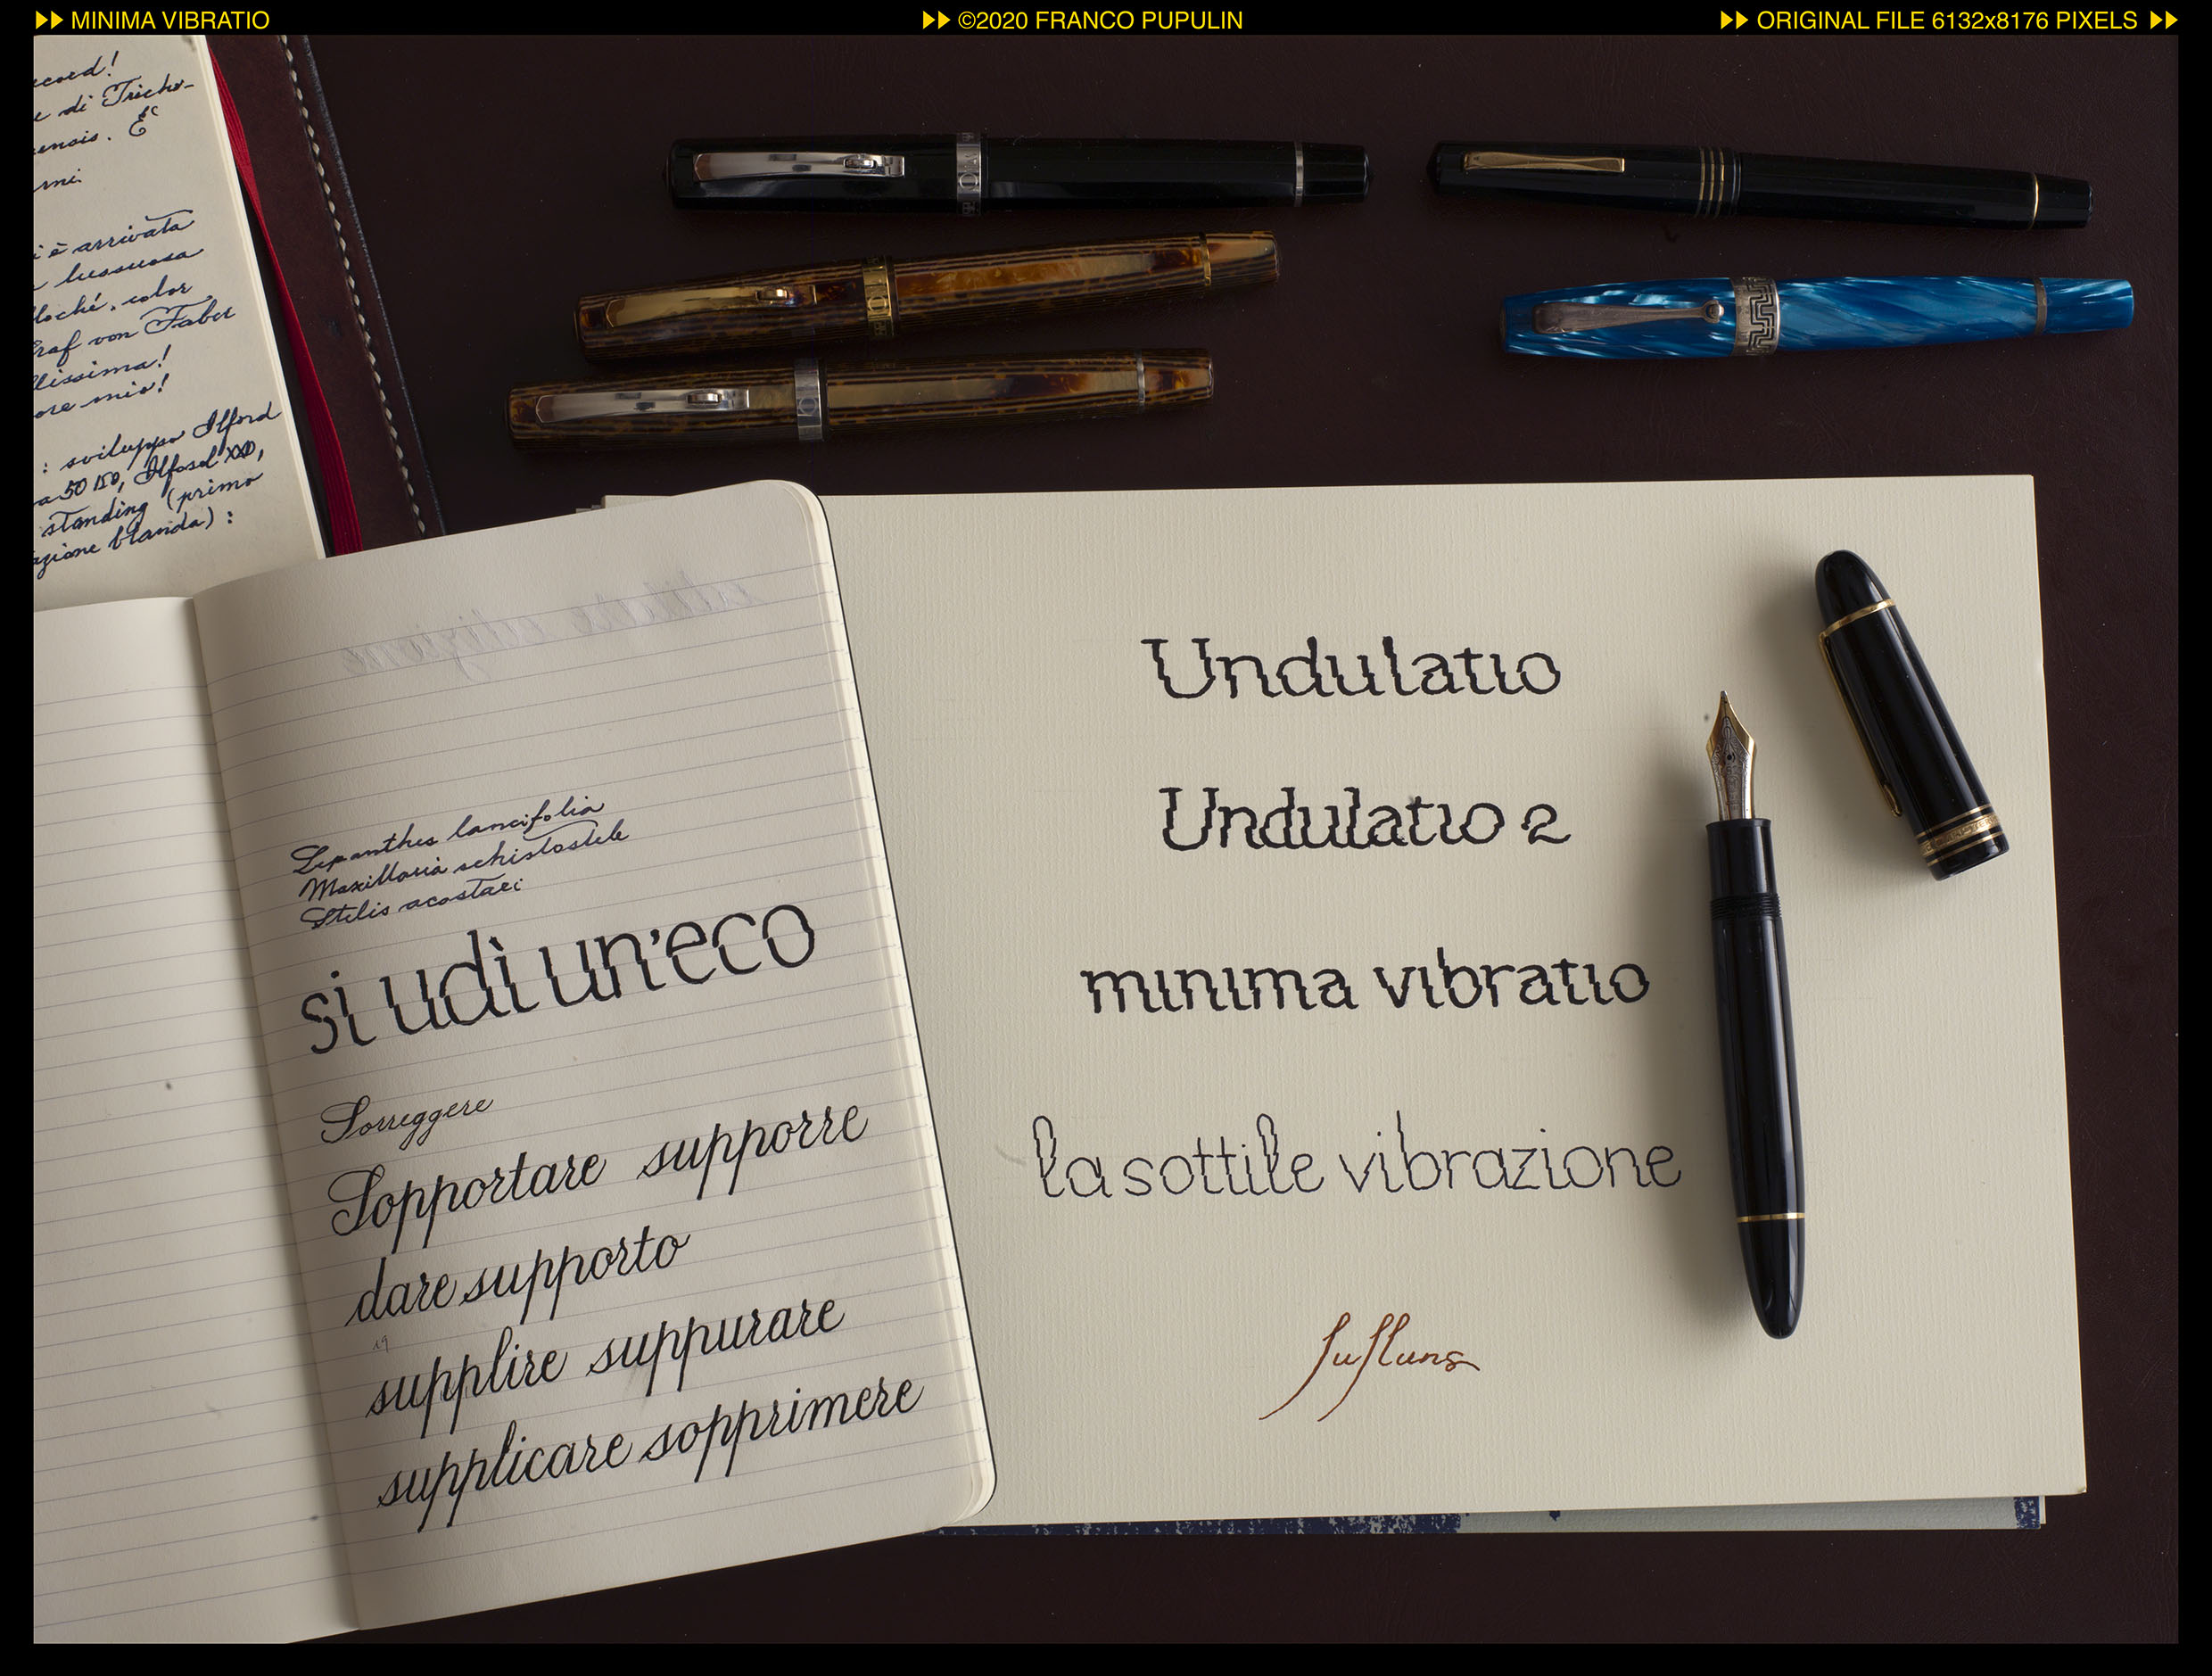 MINIMA VIBRATIO
©2020 FRANCO PUPULIN
ORIGINAL FILE 6132x8176 PIXELS
di Triche-
è arrivata
lussuosa
color
Graf von Faber
mio!
: sviluppo Ilford
50 ISO, Ilfosol
standing (primo
blanda) :
Lepanthes lancifolia
Maxillaria schistostele
Stelis acostaei
si udì un'eco
Sorreggere
Sopportare supporre
dare supporto
supplire suppurare
supplicare sopprimere
Undulatio
Undulatio 2
minima vibratio
la sottile vibrazione